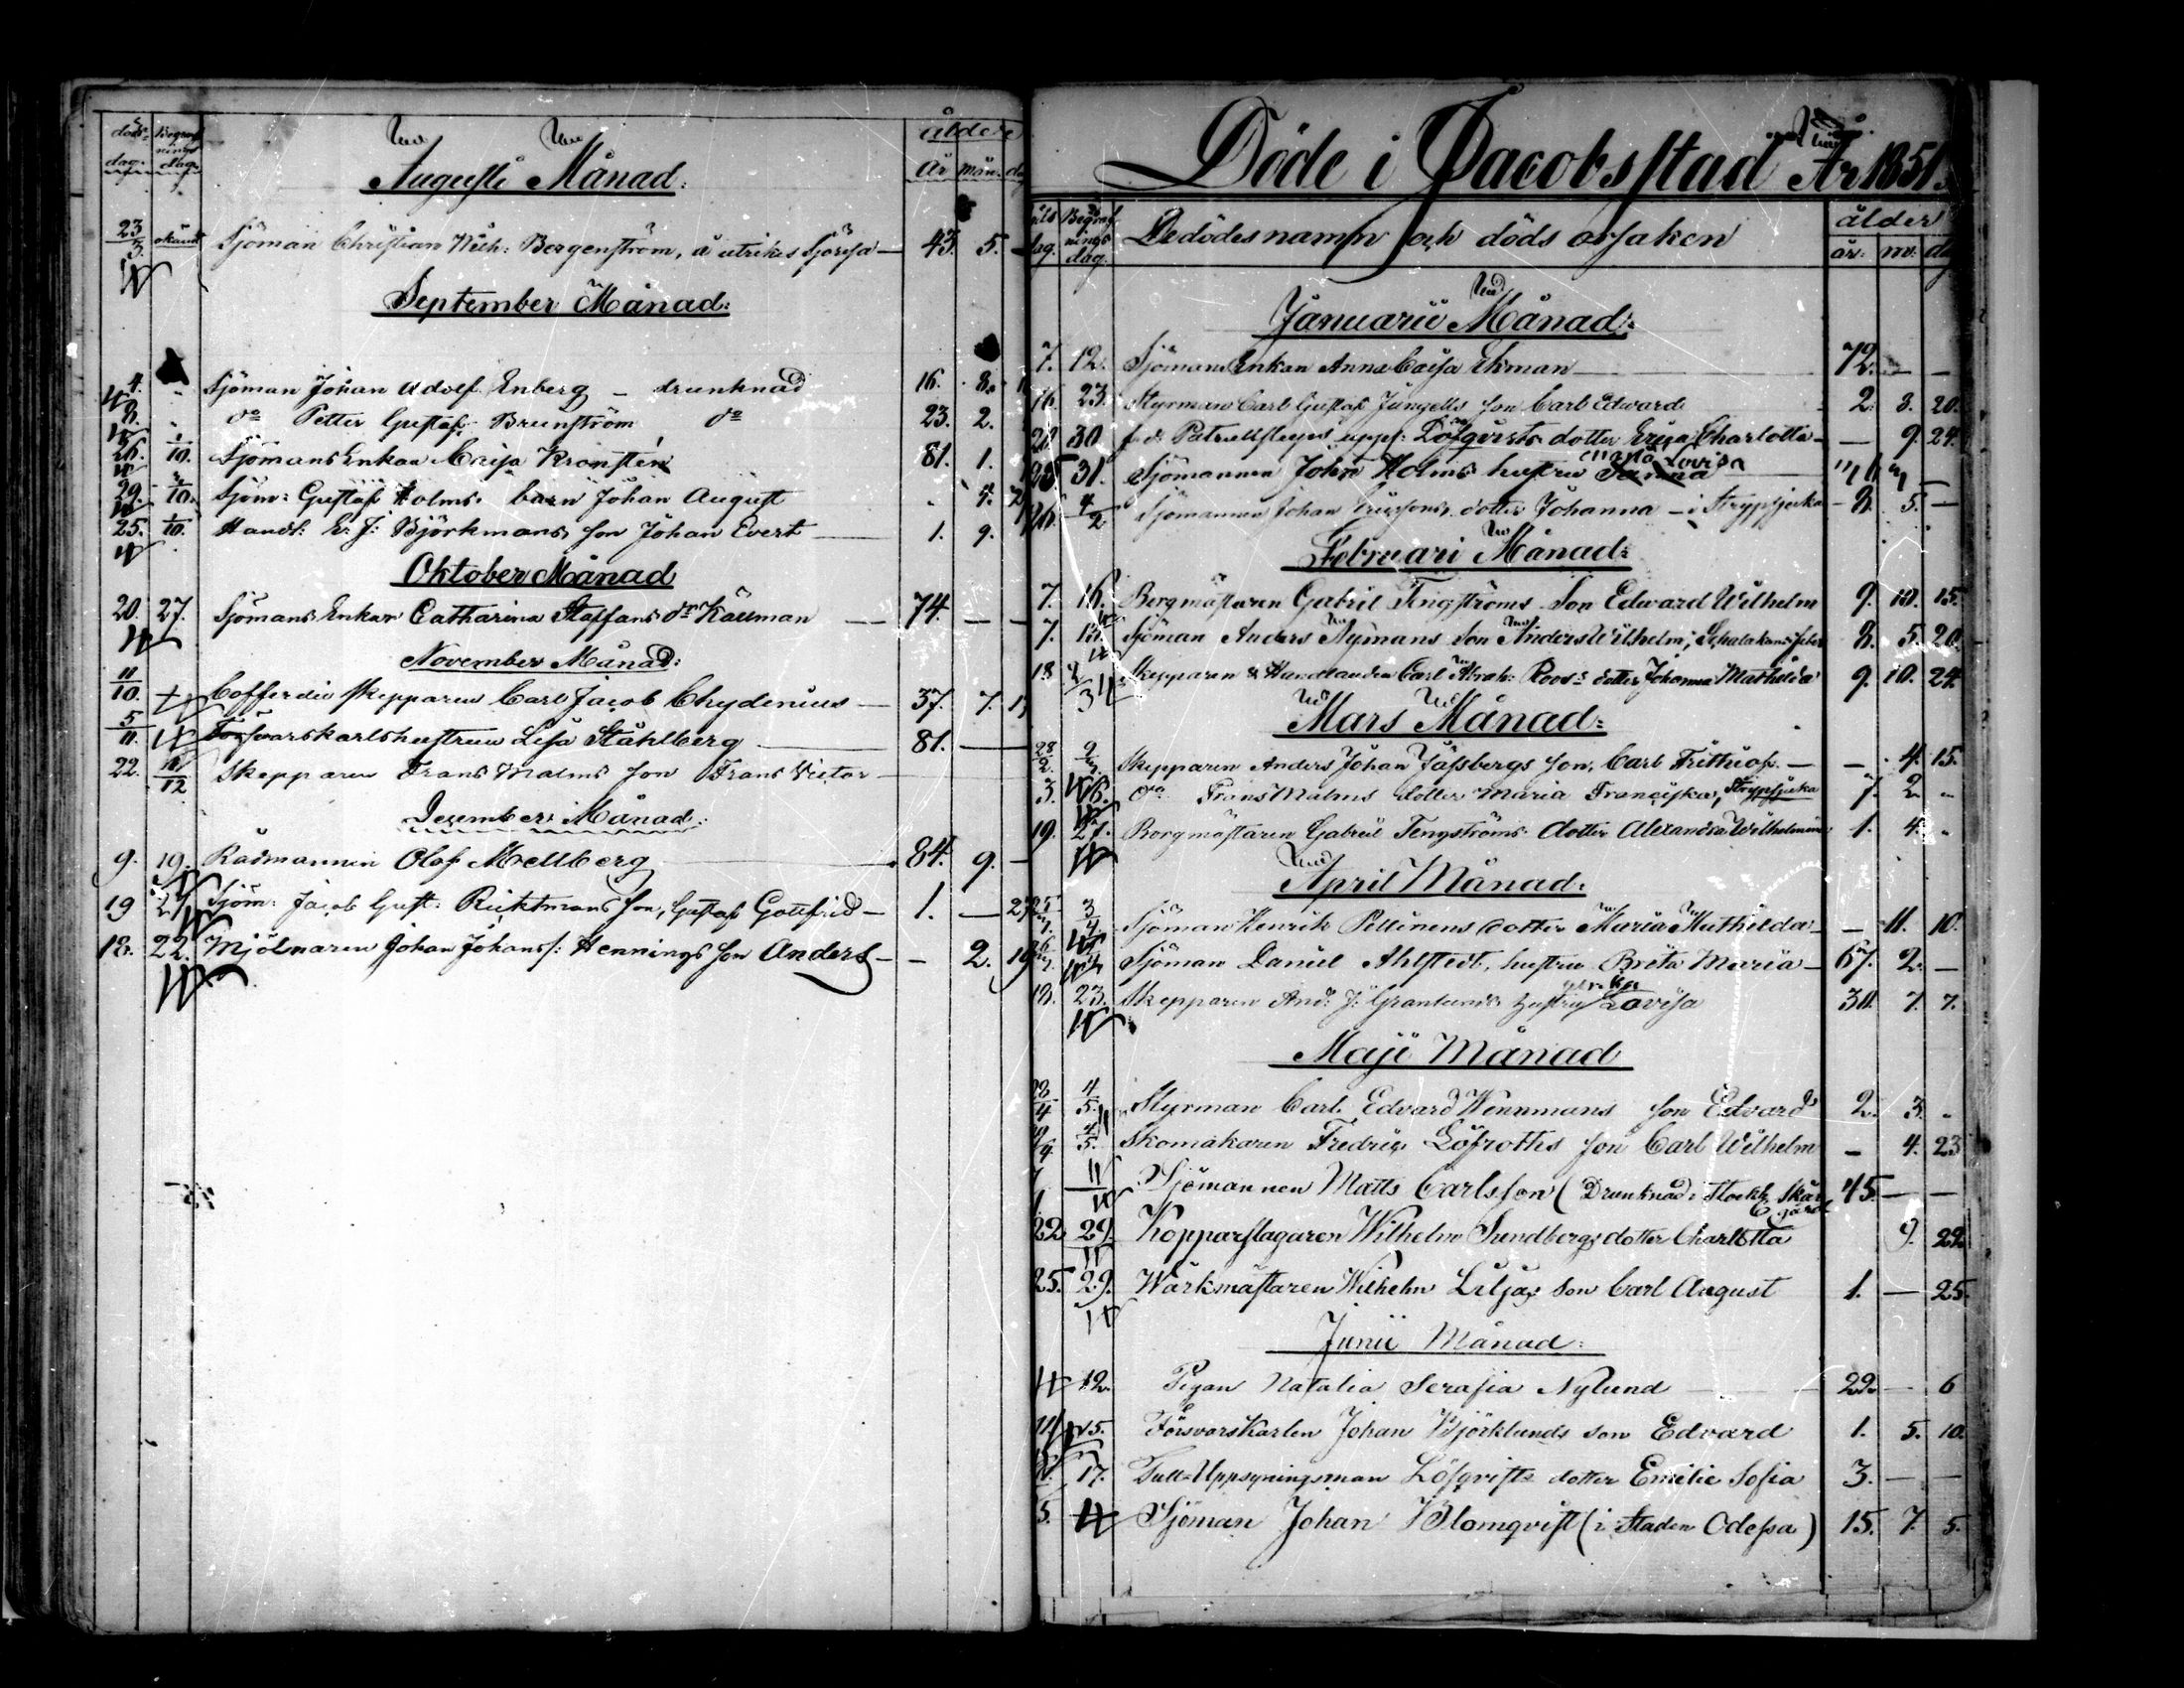 döds- Begraf- ålder
dag. nings dag. År mån. d
Augusti Månad.
23/3. okänt Sjöman Christian Wilh: Bergenström, å utrikes Sjöresa — 43. 5. —
September Månad:
4. Sjöman Johan Adolf Enberg — drunknad 16. 8.
8. do Petter Gustaf Brunström do 23. 2.
26. 1/10. Sjömans Enkan Caisa Kronsten 81. 1.
29. /10. Sjöm: Gustaf Holms barn Johan August 4.
25. 1/10. Handl: E. J: Björkmans son Johan Evert — 1. 9.
Oktober Månad
20. 27. Sjömans Enkan Catharina Staffans dr Källman — 74. — —
November Månad:
11/10. Cofferdie skepparen Carl Jacob Chydenius — 37. 7.
5/11. Försvarskarlshustrun Lisa Ståhlberg — 81. —
22. /12 Skepparen Frans Malms son Frans Victor —
Desember Månad:
9. 19. Rådmannen Olof Mellberg — 84. 9. —
19 27 Sjöm: Jacob Gust: Ricktmans son, Gustaf Gottfrid — 1. —
18. 22. Mjölnaren Johan Johanss: Hennings son Anders — — 2. 19
Döde i Jacobsstad År 1851.
Begraf- ålder
dag. nings dag. De dödes namn och döds orsaken år: m: dag
Januarii Månad:
7. 12. Sjömans Enkan Anna Caisa Ekman — 72. — —
16. 23. Styrman Carl Gustaf Jungells son Carl Edward 2. 3. 20.
30 f.d. Löfqvists dotter Erica Charlotta — — 9. 24.
Maria Lovisa
25 31. Sjömannen John Holms hustru
4/2 Sjömannen Johan dotter Johanna — i Strypsjuka — 8. 5. —
Februari Månad:
7. 16. Borgmästaren Gabriel Tengströms Son Edward Wilhelm 9. 10. 15.
7. Sjöman Anders Nymans Son Anders Wilhelm; 8. 5. 20.
18 2/3 Skepparen & Handlanden Carl Abrah: Roos's dotter Johanna Mathilda 9. 10. 24
Mars Månad:
28/2. Skepparen Anders Johan son, Carl Frithiof. — — 4. 15.
3. do Frans Malms dotter Maria Franciska, Strypsjuka 7. 2 „
19. 27. Borgmästaren Gabriel Tengströms dotter Alexandra Wilhelmina 1. 4.
April Månad:
3/4. Sjöman Henrik Pellinens dotter Maria Mathilda — — 11. 10.
Sjöman Daniel Ahlstedt, hustru Brita Maria — 67. 2. —
18. 23. Skepparen And: J: Granlunds hustru Lovisa 30. 7. 7.
Maji Månad
28/4 4/5. Styrman Carl Edvard Wennmans son Edvard 2. 3.
4/5. Skomakaren Fredric Löfroths son Carl Wilhelm — 4. 23
11 Sjömannen Matts Carlsson (Drunknad i Stockh. Skär- 45 — —
gård
22 29. Kopparslagaren Wilhelm Sundbergs dotter Charlotta 9. 22.
25. 29. Wärkmästaren Wilhelm Liljas Son Carl August 1. — 25.
Junii Månad:
12. Pigan Natalia Serafia Nylund — 22. — 6
15. Försvarskarlen Johan Björklunds son Edvard 1. 5. 10.
17. Tull-Uppsyningsman Löfqvists dotter Emilie Sofia 3. — —
5. Sjöman Johan Blomqvist (i Staden Odessa) 15. 7. 5.